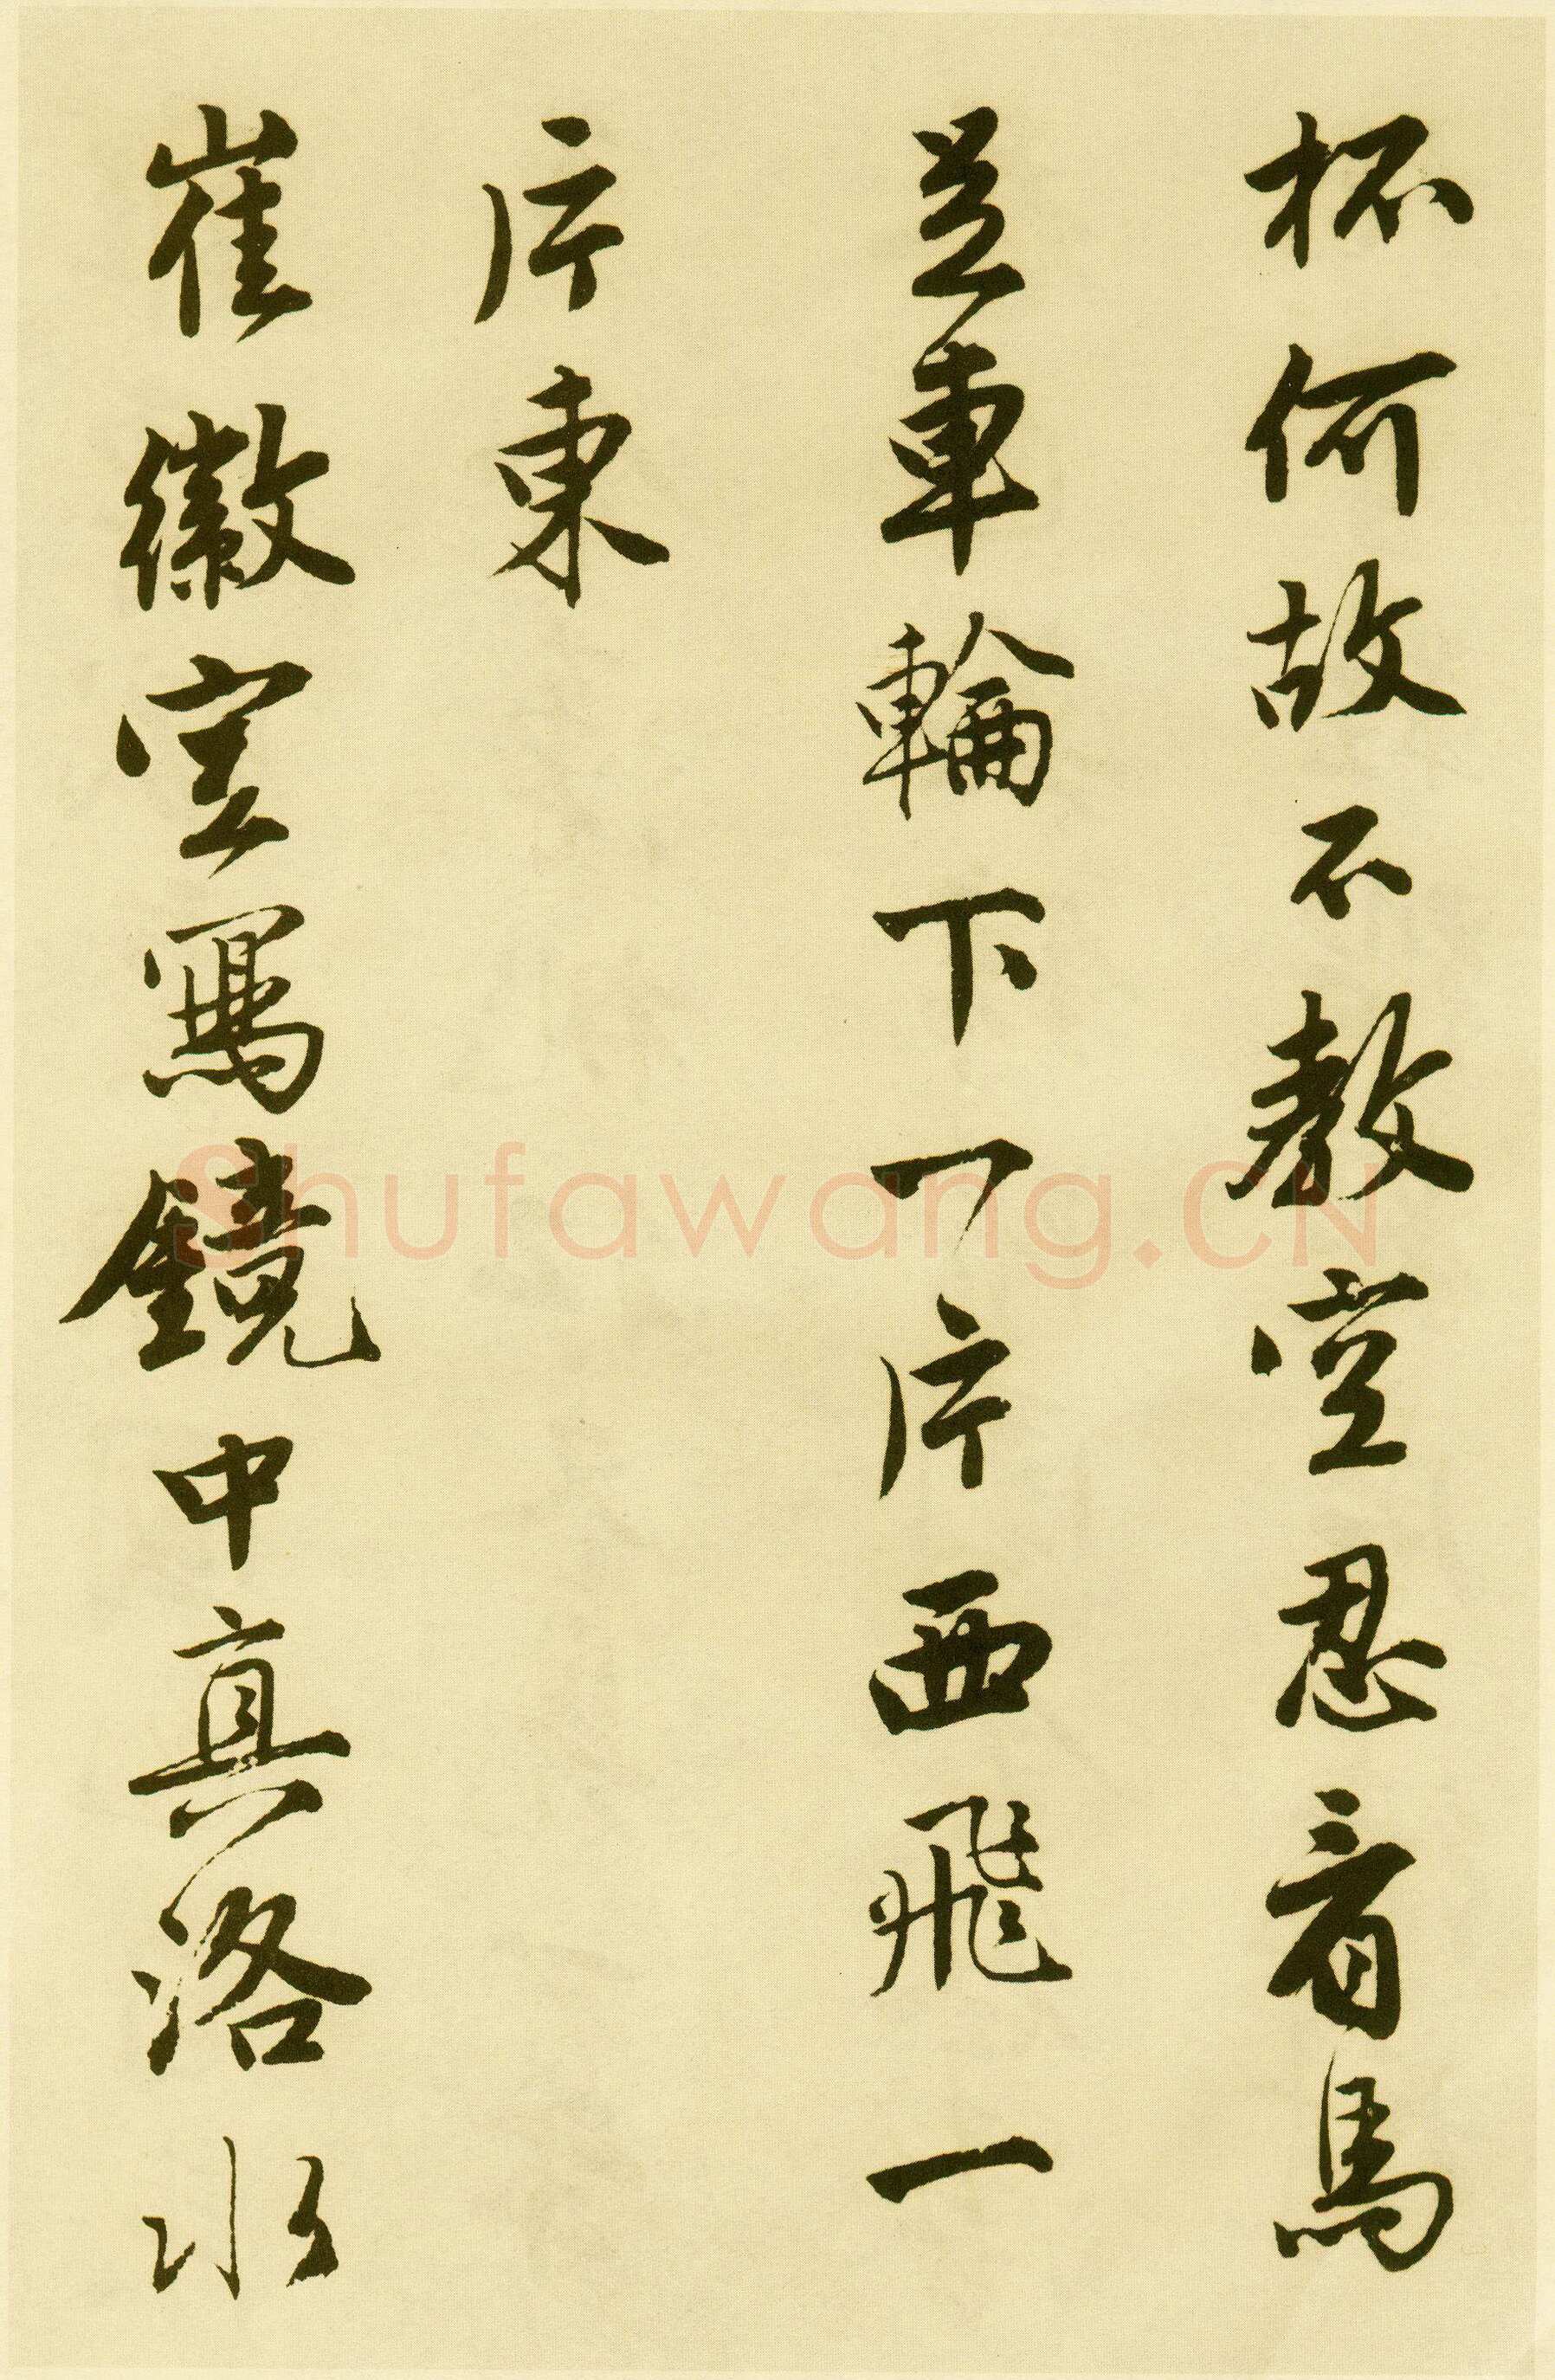 杯何故不教空忍看馬
足車輪下一片西飛一
片東
崔徽空寫鏡中真洛水
Shufawang.CN